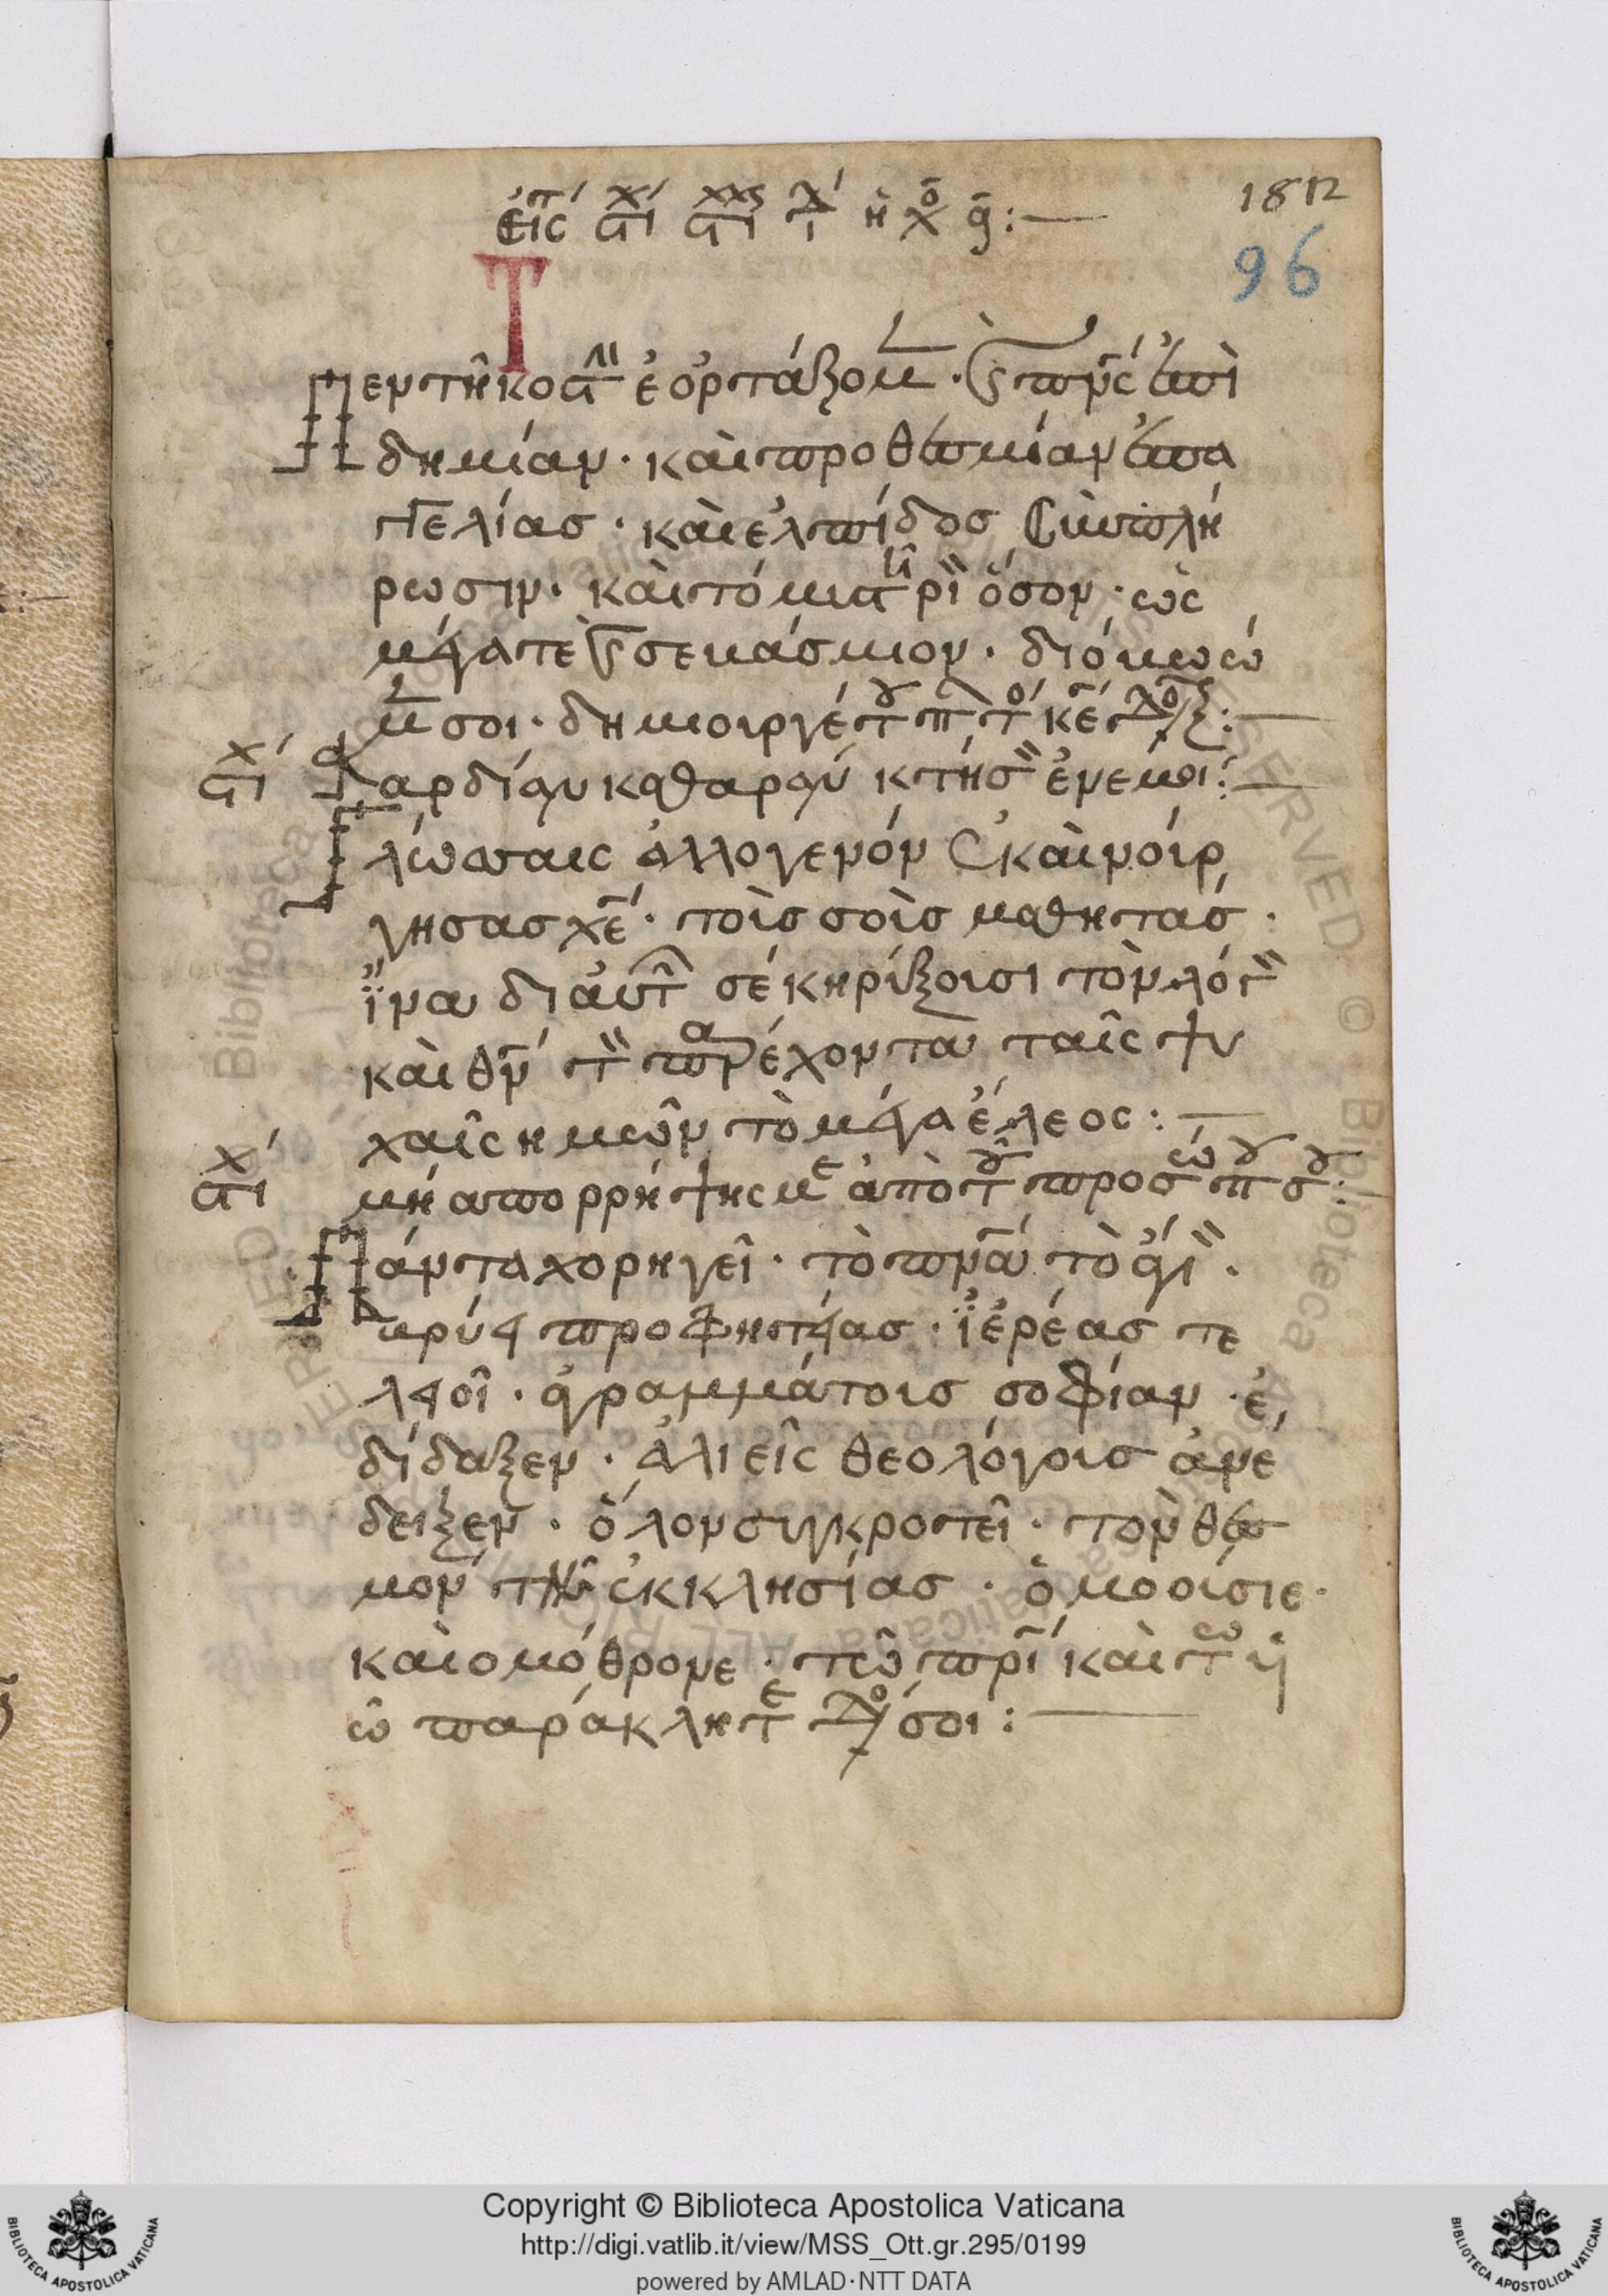 εἰς
182
96
Πεντηκοστὴν ἑορτάζομεν · καὶ πνς ἐπι
δημίαν · καὶ προθεσμίαν ἐπα
γγελίας · καὶ ἐλπίδος συνπλή
ρωσιν · καὶ τὸ μυστήριον ὅσον · ὡς
μέγα τε καὶ σεβάσμιον · διὸ βοῶ
μέν σοι · δημιουργὲ τοῦ παντός κε δόξα :—
στι καρδίαν καθαρὰν κτῆσον ἐν ἐμοι :—
Γλώσσαις ἀλλογενῶν ἐκαινούρ
γησας χε · τοὶς σοὶς μαθητάς ·
ἵνα δι αὐτῶν σὲ κηρύξουσι τὸν λόγον
καὶ θν τὸν παρέχοντα ταῖς ψυ
χαῖς ημῶν τὸ μέγα ἔλεος :—
στι μὴ απορρήψης με ἀπὸ τοῦ προσώπου σου :
Πάντα χορηγεῖ · τὸ πνα τὸ ἅγιον ·
βρύει προφητείας · ἱερέας τε
λειοῖ · ἀγραμμάτους σοφίαν · ἐ
δίδαξεν · ἁλιεῖς θεολόγους ἀνέ
δειξεν · ὅλον συγκροτεῖ · τὸν θεσ
μὸν τῆς ἐκκλησίας · ὁμοούσιε ·
καὶ ομόθρονε · τῶ πρι καὶ τῶ υι
ῶ παράκλητε δόξα σοι :—
Copyright © Biblioteca Apostolica Vaticana
http://digi.vatlib.it/view/MSS_Ott.gr.295/0199
powered by AMLAD·NTT DATA